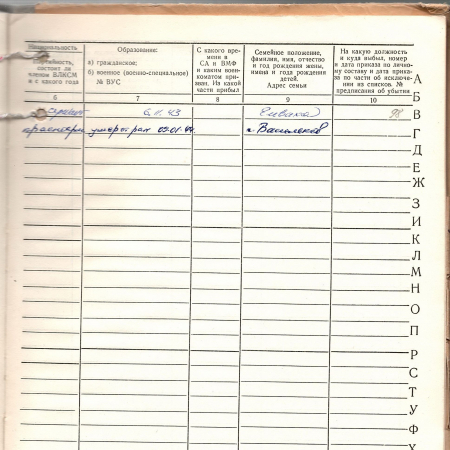 Национальность
Партийность,
состоит ли
членом ВЛКСМ
и с какого года
Образование:
а) гражданское;
б) военное (военно-специальное)
№ ВУС
С какого вре-
мени в
СА и ВМФ
и каким воен-
коматом при-
зван. Из какой
части прибыл
Семейное положение,
фамилия, имя, отчество
и год рождения жены,
имена и года рождения
детей.
Адрес семьи
На какую должность
и куда выбыл, номер
и дата приказа по лично-
му составу и дата прика-
за по части об исключе-
нии из списков. №
предписания об убытии
6 7 8 9 10
6.11.43 98
умер от ран 09.01.44.
А
Б
В
Г
Д
Е
Ж
З
И
К
Л
М
Н
О
П
Р
С
Т
У
Ф
Х